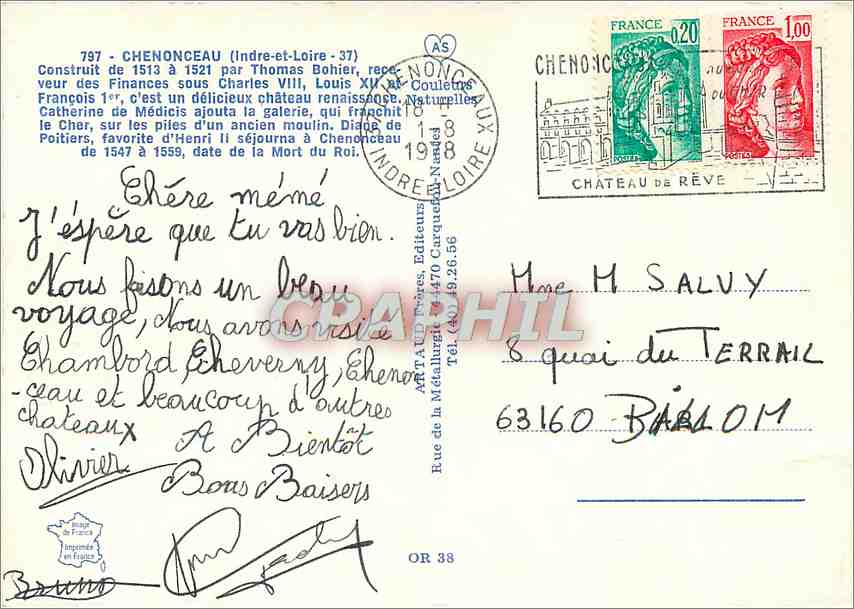 797 - CHENONCEAU (Indre-et-Loire - 37)
Construit de 1513 à 1521 par Thomas Bohier, rece-
veur des Finances sous Charles VIII, Louis XII et
François 1er, c'est un délicieux château renaissance.
Catherine de Médicis ajouta la galerie, qui franchit
le Cher, sur les piles d'un ancien moulin. Diane de
Poitiers, favorite d'Henri II séjourna à Chenonceau
de 1547 à 1559, date de la Mort du Roi.
AS
Couleurs
Naturelles
CHENONCEAUX
18 H
1-8
1978
INDRE E LOIRE
FRANCE
0,20
POSTES
FRANCE
1,00
POSTES
CHENONCEAUX
CHATEAU DE RÊVE
Chére mémé
J'éspère que tu vas bien.
Nous faisons un beau
voyage, Nous avons visité
Chambord, Cheverny, Chenon
-ceau et beaucoup d'autres
chateaux
A Bientôt
Olivier
Bons Baisers
Bruno
Image
de France
Imprimée
en France
ARTAUD Frères, Editeurs
Rue de la Métallurgie - 44470 Carquefou-Nantes
Tél. (40) 49.26.56
OR 38
CPAPHIL
Mme M SALVY
8 quai du TERRAIL
63160 BILLOM